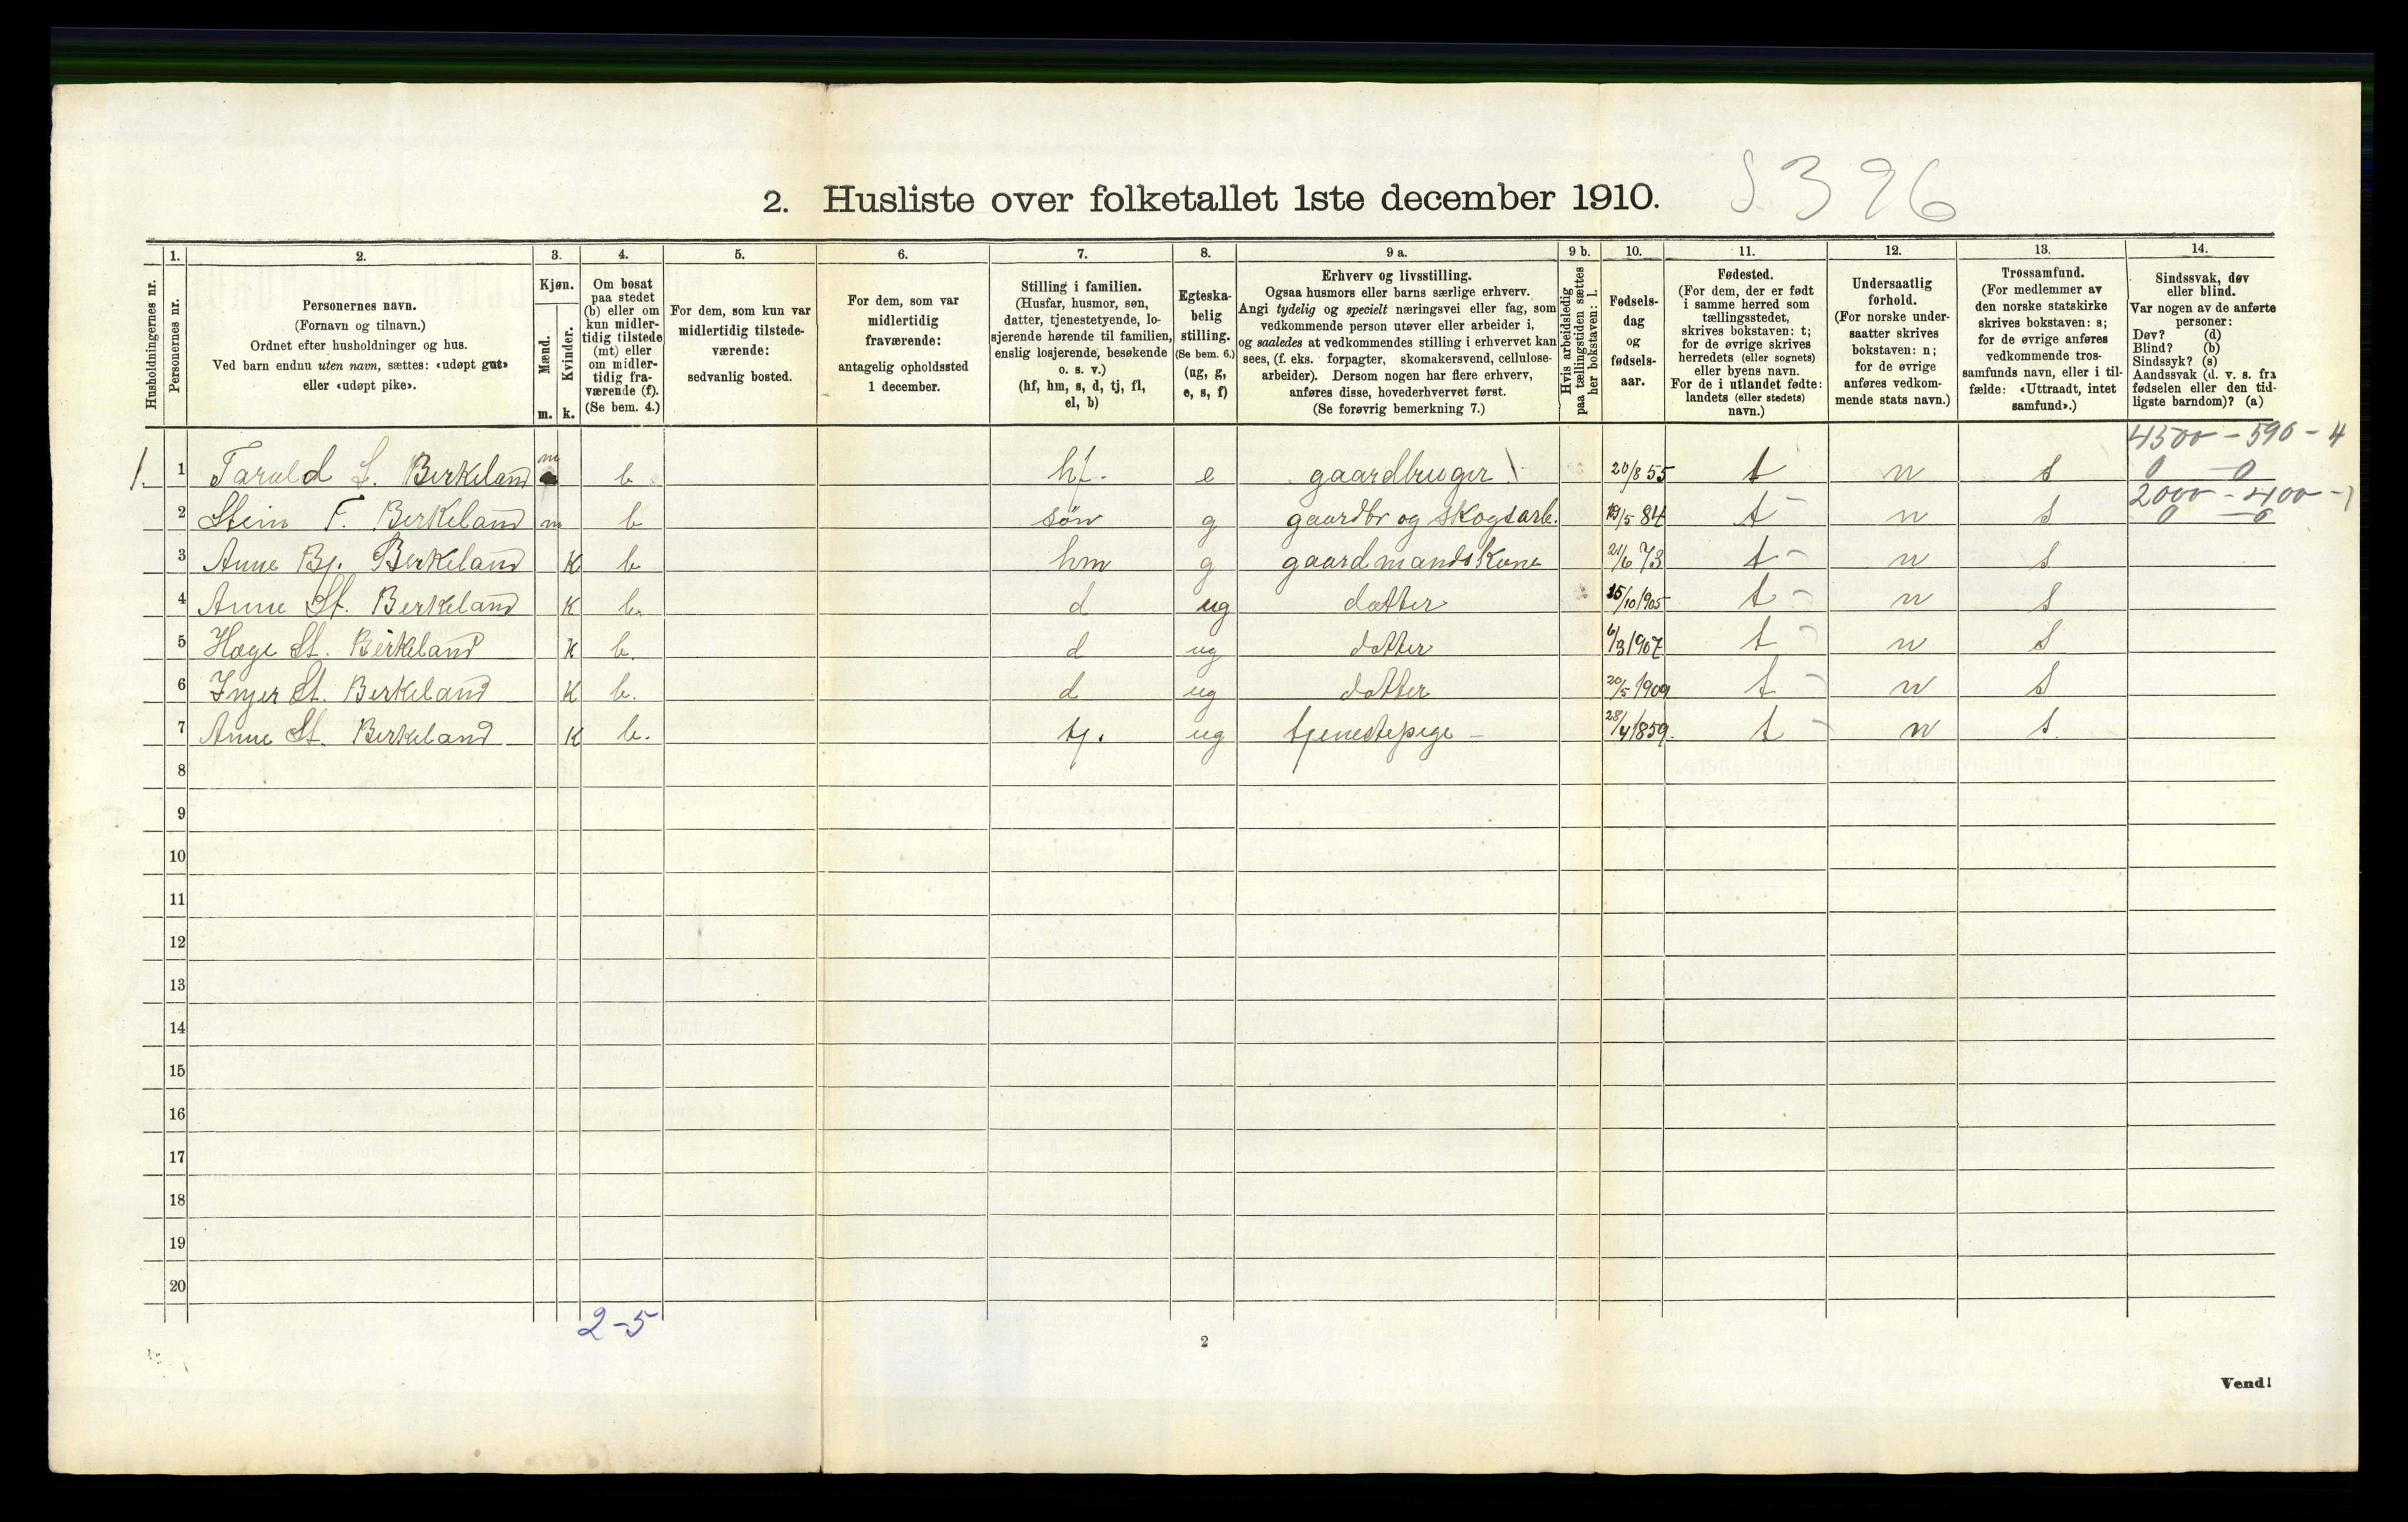 2. Husliste over folketallet 1ste december 1910. S 396
1. 2. 3. 4. 5. 6. 7. 8. 9 a. 9 b. 10. 11. 12. 13. 14.
Husholdningernes nr.
Personernes nr.
Personernes navn.
(Fornavn og tilnavn.)
Ordnet efter husholdninger og hus.
Ved barn endnu uten navn, sættes: «udøpt gut»
eller «udøpt pike».
Kjøn.
Mænd.
m.
Kvinder.
k.
Om bosat
paa stedet
(b) eller om
kun midler-
tidig tilstede
(mt) eller
om midler-
tidig fra-
værende (f).
(Se bem. 4.)
For dem, som kun var
midlertidig tilstede-
værende:
sedvanlig bosted.
For dem, som var
midlertidig
fraværende:
antagelig opholdssted
1 december.
Stilling i familien.
(Husfar, husmor, søn,
datter, tjenestetyende, lo-
sjerende hørende til familien,
enslig losjerende, besøkende
o. s. v.)
(hf, hm, s, d, tj, fl,
el, b)
Egteska-
belig
stilling.
(Se bem. 6.)
(ug, g,
e, s, f)
Erhverv og livsstilling.
Ogsaa husmors eller barns særlige erhverv.
Angi tydelig og specielt næringsvei eller fag, som
vedkommende person utøver eller arbeider i,
og saaledes at vedkommendes stilling i erhvervet kan
sees, (f. eks. forpagter, skomakersvend, cellulose-
arbeider). Dersom nogen har flere erhverv,
anføres disse, hovederhvervet først.
(Se forøvrig bemerkning 7.)
Hvis arbeidsledig
paa tællingstiden sættes
her bokstaven: l.
Fødsels-
dag
og
fødsels-
aar.
Fødested.
(For dem, der er født
i samme herred som
tællingsstedet,
skrives bokstaven: t;
for de øvrige skrives
herredets (eller sognets)
eller byens navn.
For de i utlandet fødte:
landets (eller stedets)
navn.)
Undersaatlig
forhold.
(For norske under-
saatter skrives
bokstaven: n;
for de øvrige
anføres vedkom-
mende stats navn.)
Trossamfund.
(For medlemmer av
den norske statskirke
skrives bokstaven: s;
for de øvrige anføres
vedkommende tros-
samfunds navn, eller i til-
fælde: «Uttraadt, intet
samfund».)
Sindssvak, døv
eller blind.
Var nogen av de anførte
personer:
Døv? (d)
Blind? (b)
Sindssyk? (s)
Aandssvak (d. v. s. fra
fødselen eller den tid-
ligste barndom)? (a)
4500 - 590 - 4
1. 1 Tarald L. Berkeland m b hf. e gaardbruger 20/8 55 t n s 0 - 0
2000 - 400 - 1
2 Stein T. Berkeland m b søn g gaardbr og skogsarb. 19/5 84 t n s 0 - 0
3 Anne Bj. Berkeland K b hm g gaardmandskone 21/6 73 t n s
4 Anne St. Berkeland K b. d ug datter 15/10 1905 t n s
5 Hæge St. Berkeland K b. d ug datter 6/3 1907 t n s
6 Inger St. Berkeland K b. d ug datter 20/5 1909 t n s
7 Anne St. Berkeland K b. tj. ug tjenestepige - 28/4 1859. t n s
8
9
10
11
12
13
14
15
16
17
18
19
20
2-5
2
Vend!